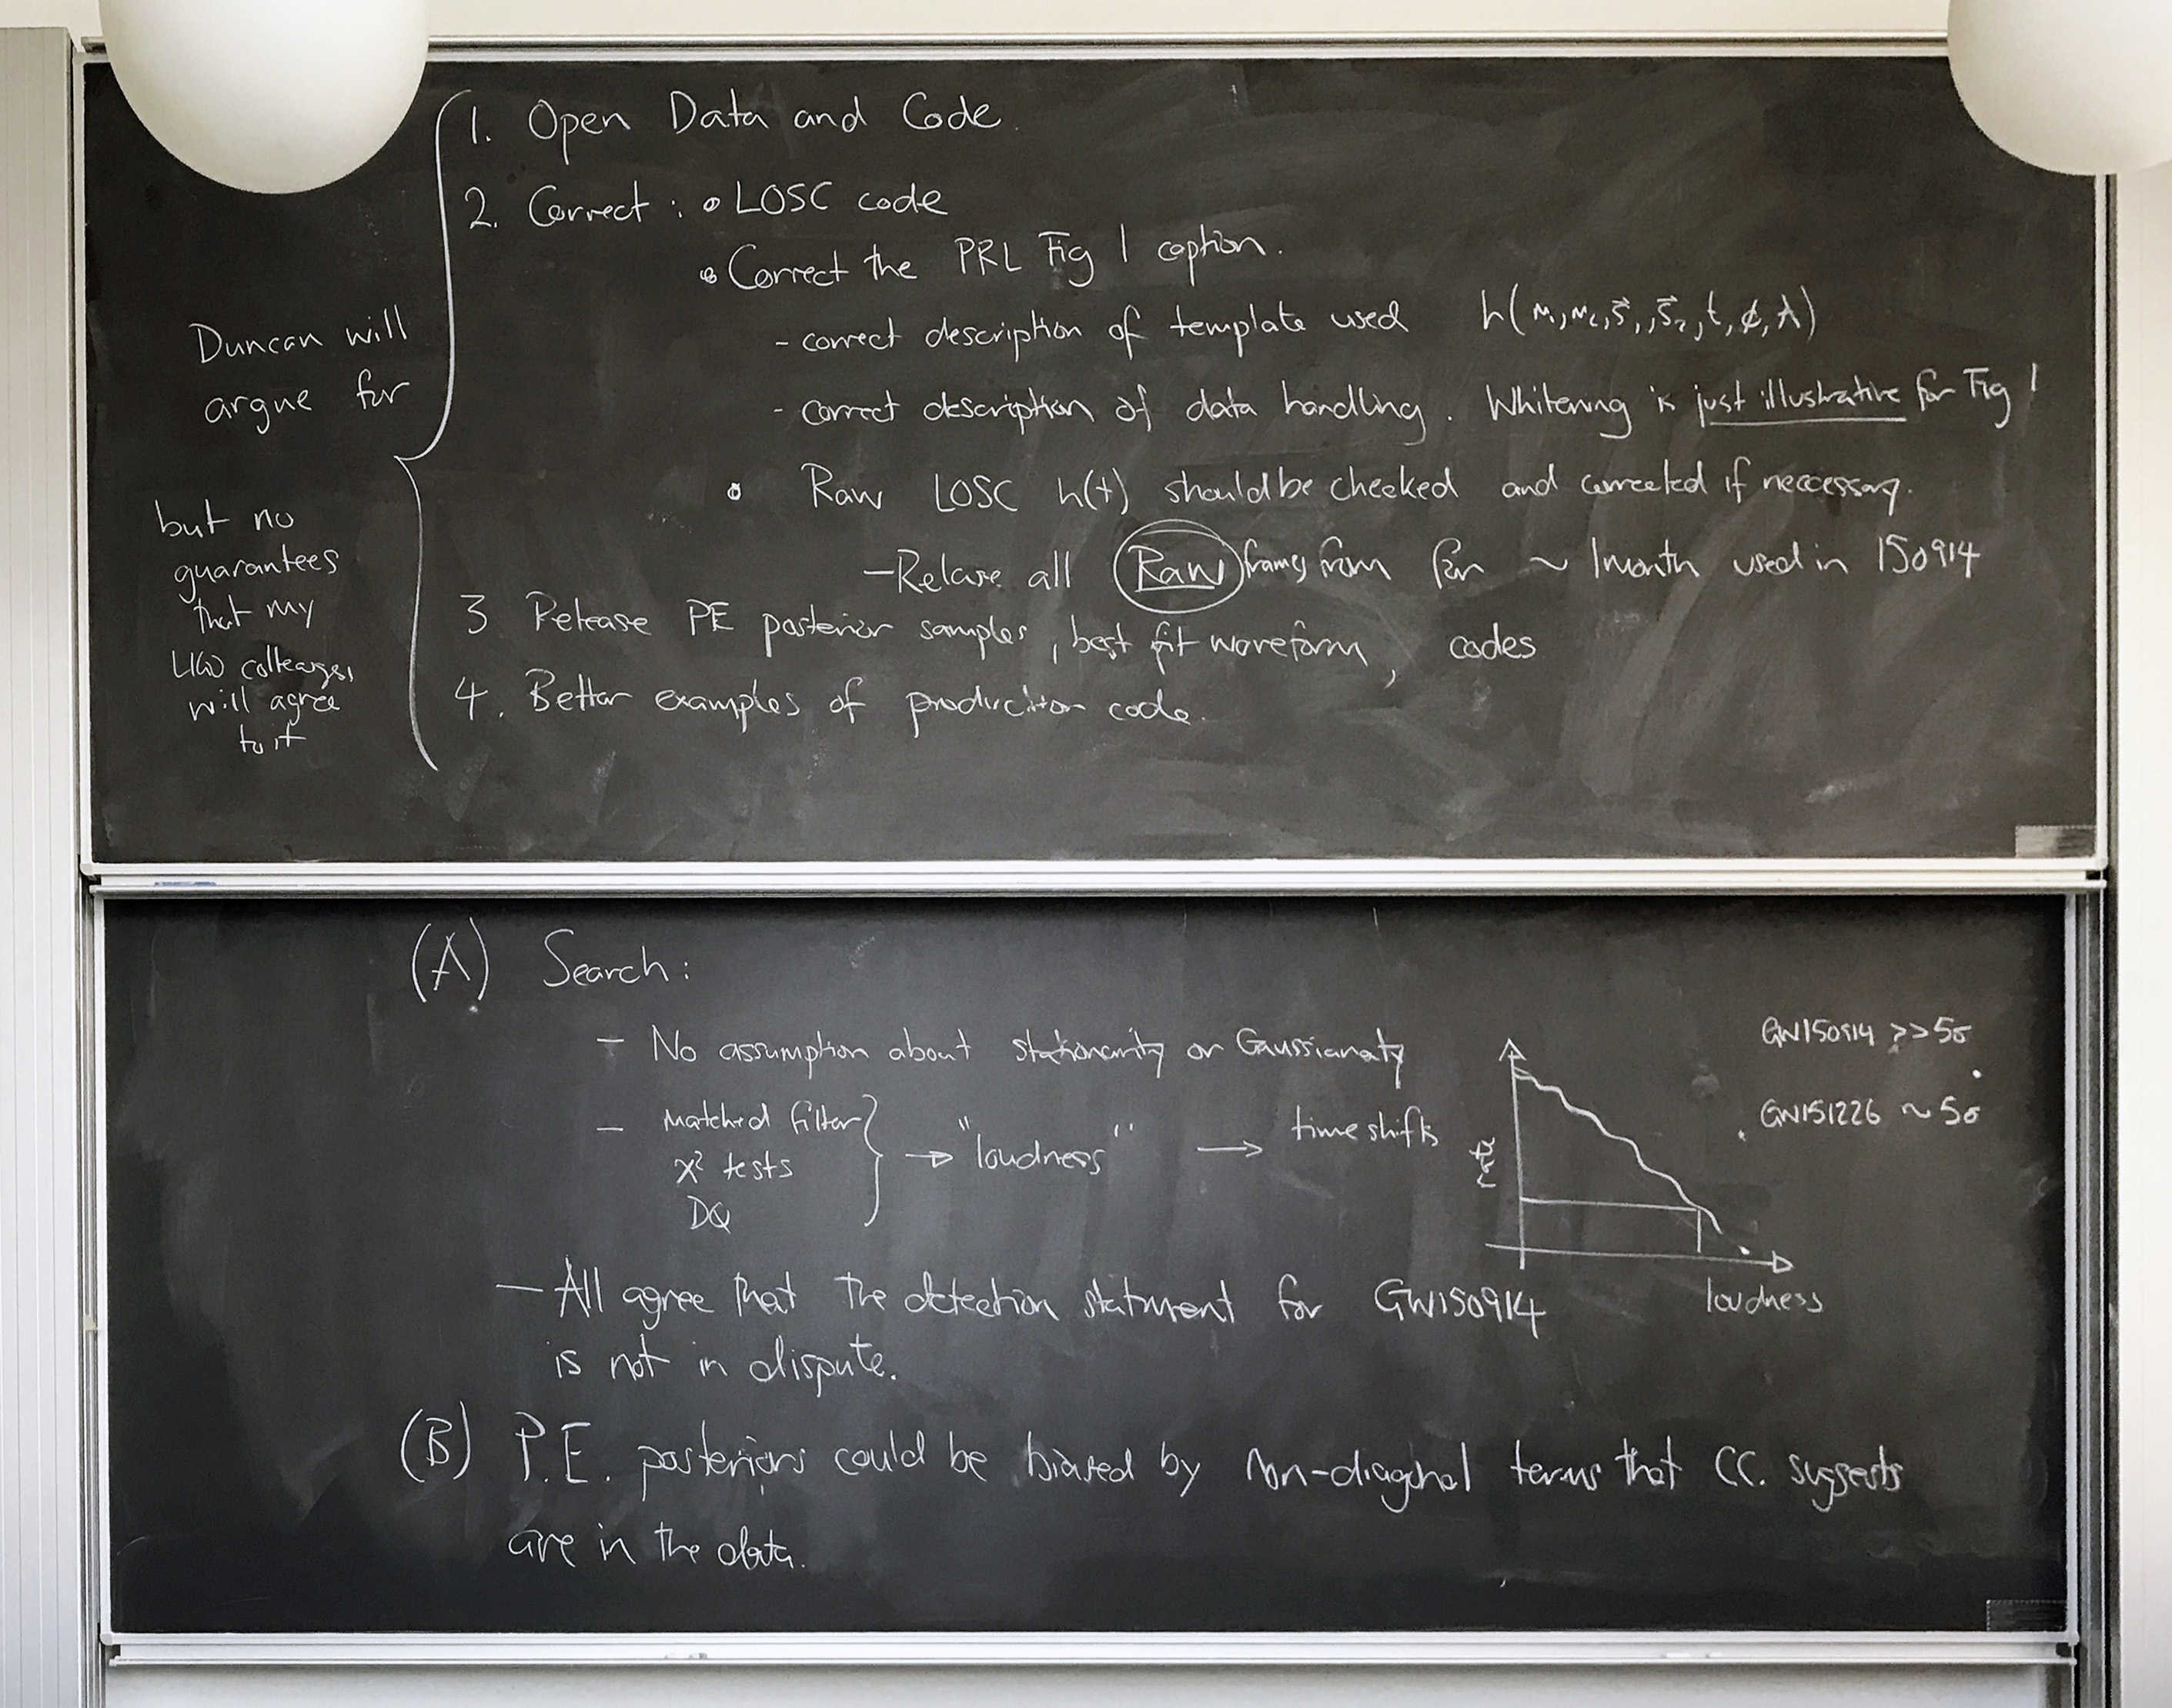 1. Open Data and Code.
2. Correct : • LOSC code
• Correct the PRL Fig 1 caption.
- correct description of template used h(m₁, m₂, s⃗₁, s⃗₂, t, ϕ, A)
- correct description of data handling. Whitening is just illustrative for Fig 1
• Raw LOSC h(t) should be checked and corrected if neccessary.
- Release all Raw frames from for ~ 1 month used in 150914
3 Release PE posterior samples, best fit waveform, codes
4. Better examples of production code.
Duncan will
argue for
but no
guarantees
that my
LIGO colleagues
will agree
to it
(A) Search:
- No assumption about stationarity or Gaussianaty
- Matched filter
χ² tests
DQ
→ "loudness" → time shifts
loudness
GW150914 >> 5σ
GW151226 ~ 5σ
- All agree that the detection statment for GW150914
is not in dispute.
(B) P.E. posteriors could be biased by non-diagonal terms that CC. suggests
are in the data.